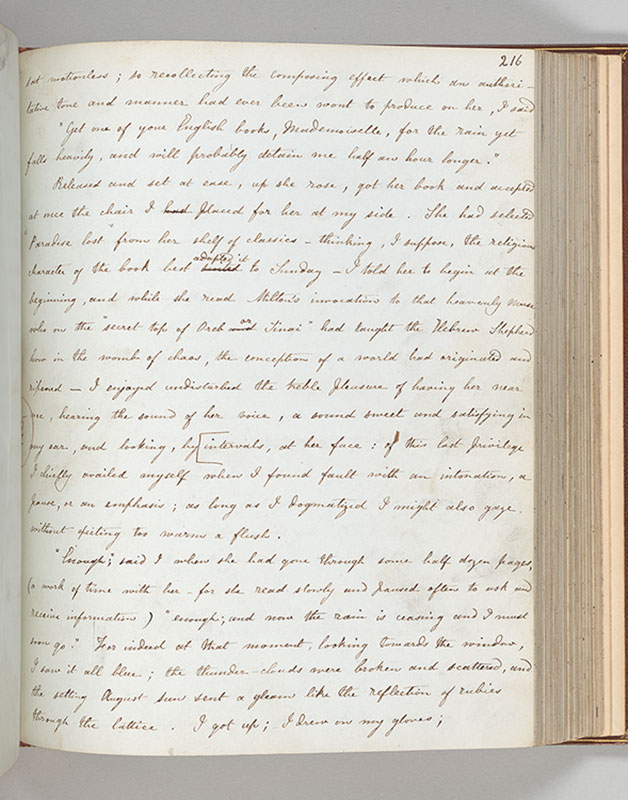 216
sat motionless ; so recollecting the composing effect which an authori-
tative tone and manner had ever been wont to produce on her, I said
"Get one of your English books, Mademoiselle, for the rain yet
falls heavily, and will probably detain me half an hour longer."
Released and set at ease, up she rose, got her book and accepted
at once the chair I had placed for her at my side. She had selected
"Paradise lost" from her shelf of classics - thinking, I suppose, the religious
adapted it
character of the book best to Sunday - I told her to begin at the
beginning, and while she read Milton's invocation to that heavenly muse
or
who on the "secret top of Oreb and Sinai" had taught the Hebrew Shepherd
how in the womb of chaos, the conception of a world had originated and
ripened - I enjoyed undisturbed the treble pleasure of having her near
me, hearing the sound of her voice, a sound sweet and satisfying in
my ear, and looking, by intervals, at her face : of this last privilege
I chiefly availed myself when I found fault with an intonation, a
pause, or an emphasis ; as long as I dogmatized I might also gaze,
without exciting too warm a flush.
"Enough"; said I when she had gone through some half dozen pages,
(a work of time with her - for she read slowly and paused often to ask and
receive information) "enough; and now the rain is ceasing and I must
soon go." For indeed at that moment, looking towards the window,
I saw it all blue ; the thunder-clouds were broken and scattered, and
the setting August sun sent a gleam like the reflection of rubies
through the lattice. I got up ; - I drew on my gloves ;